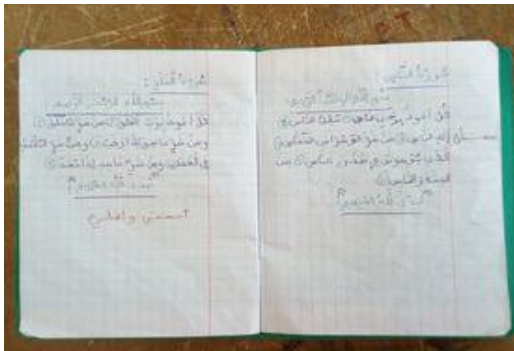 سورة الناس :
بسم الله الرحمن الرحيم
قل أعوذ برب الناس ① ملك الناس ②
إله الناس ③ من شر الوسواس الخناس ④
الذي يوسوس في صدور الناس ⑤ من
الجنة والناس ⑥
"صدق الله العظيم"
سورة الفلق :
بسم الله الرحمن الرحيم
قل أعوذ برب الفلق ① من شر ما خلق ②
ومن شر غاسق إذا وقب ③ ومن شر
في العقد ④ ومن شر حاسد إذا حسد ⑤
"صدق الله العظيم"
أحسنتي